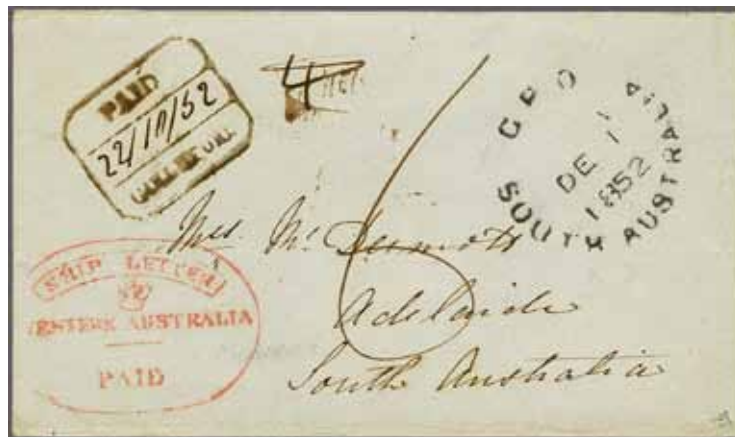 PAID
22/10/52
4
6
GPO
DE 1
1852
SOUTH AUSTRALIA
Mrs. Mc Dermott
Adelaide
South Australia
SHIP LETTER
WESTERN AUSTRALIA
PAID